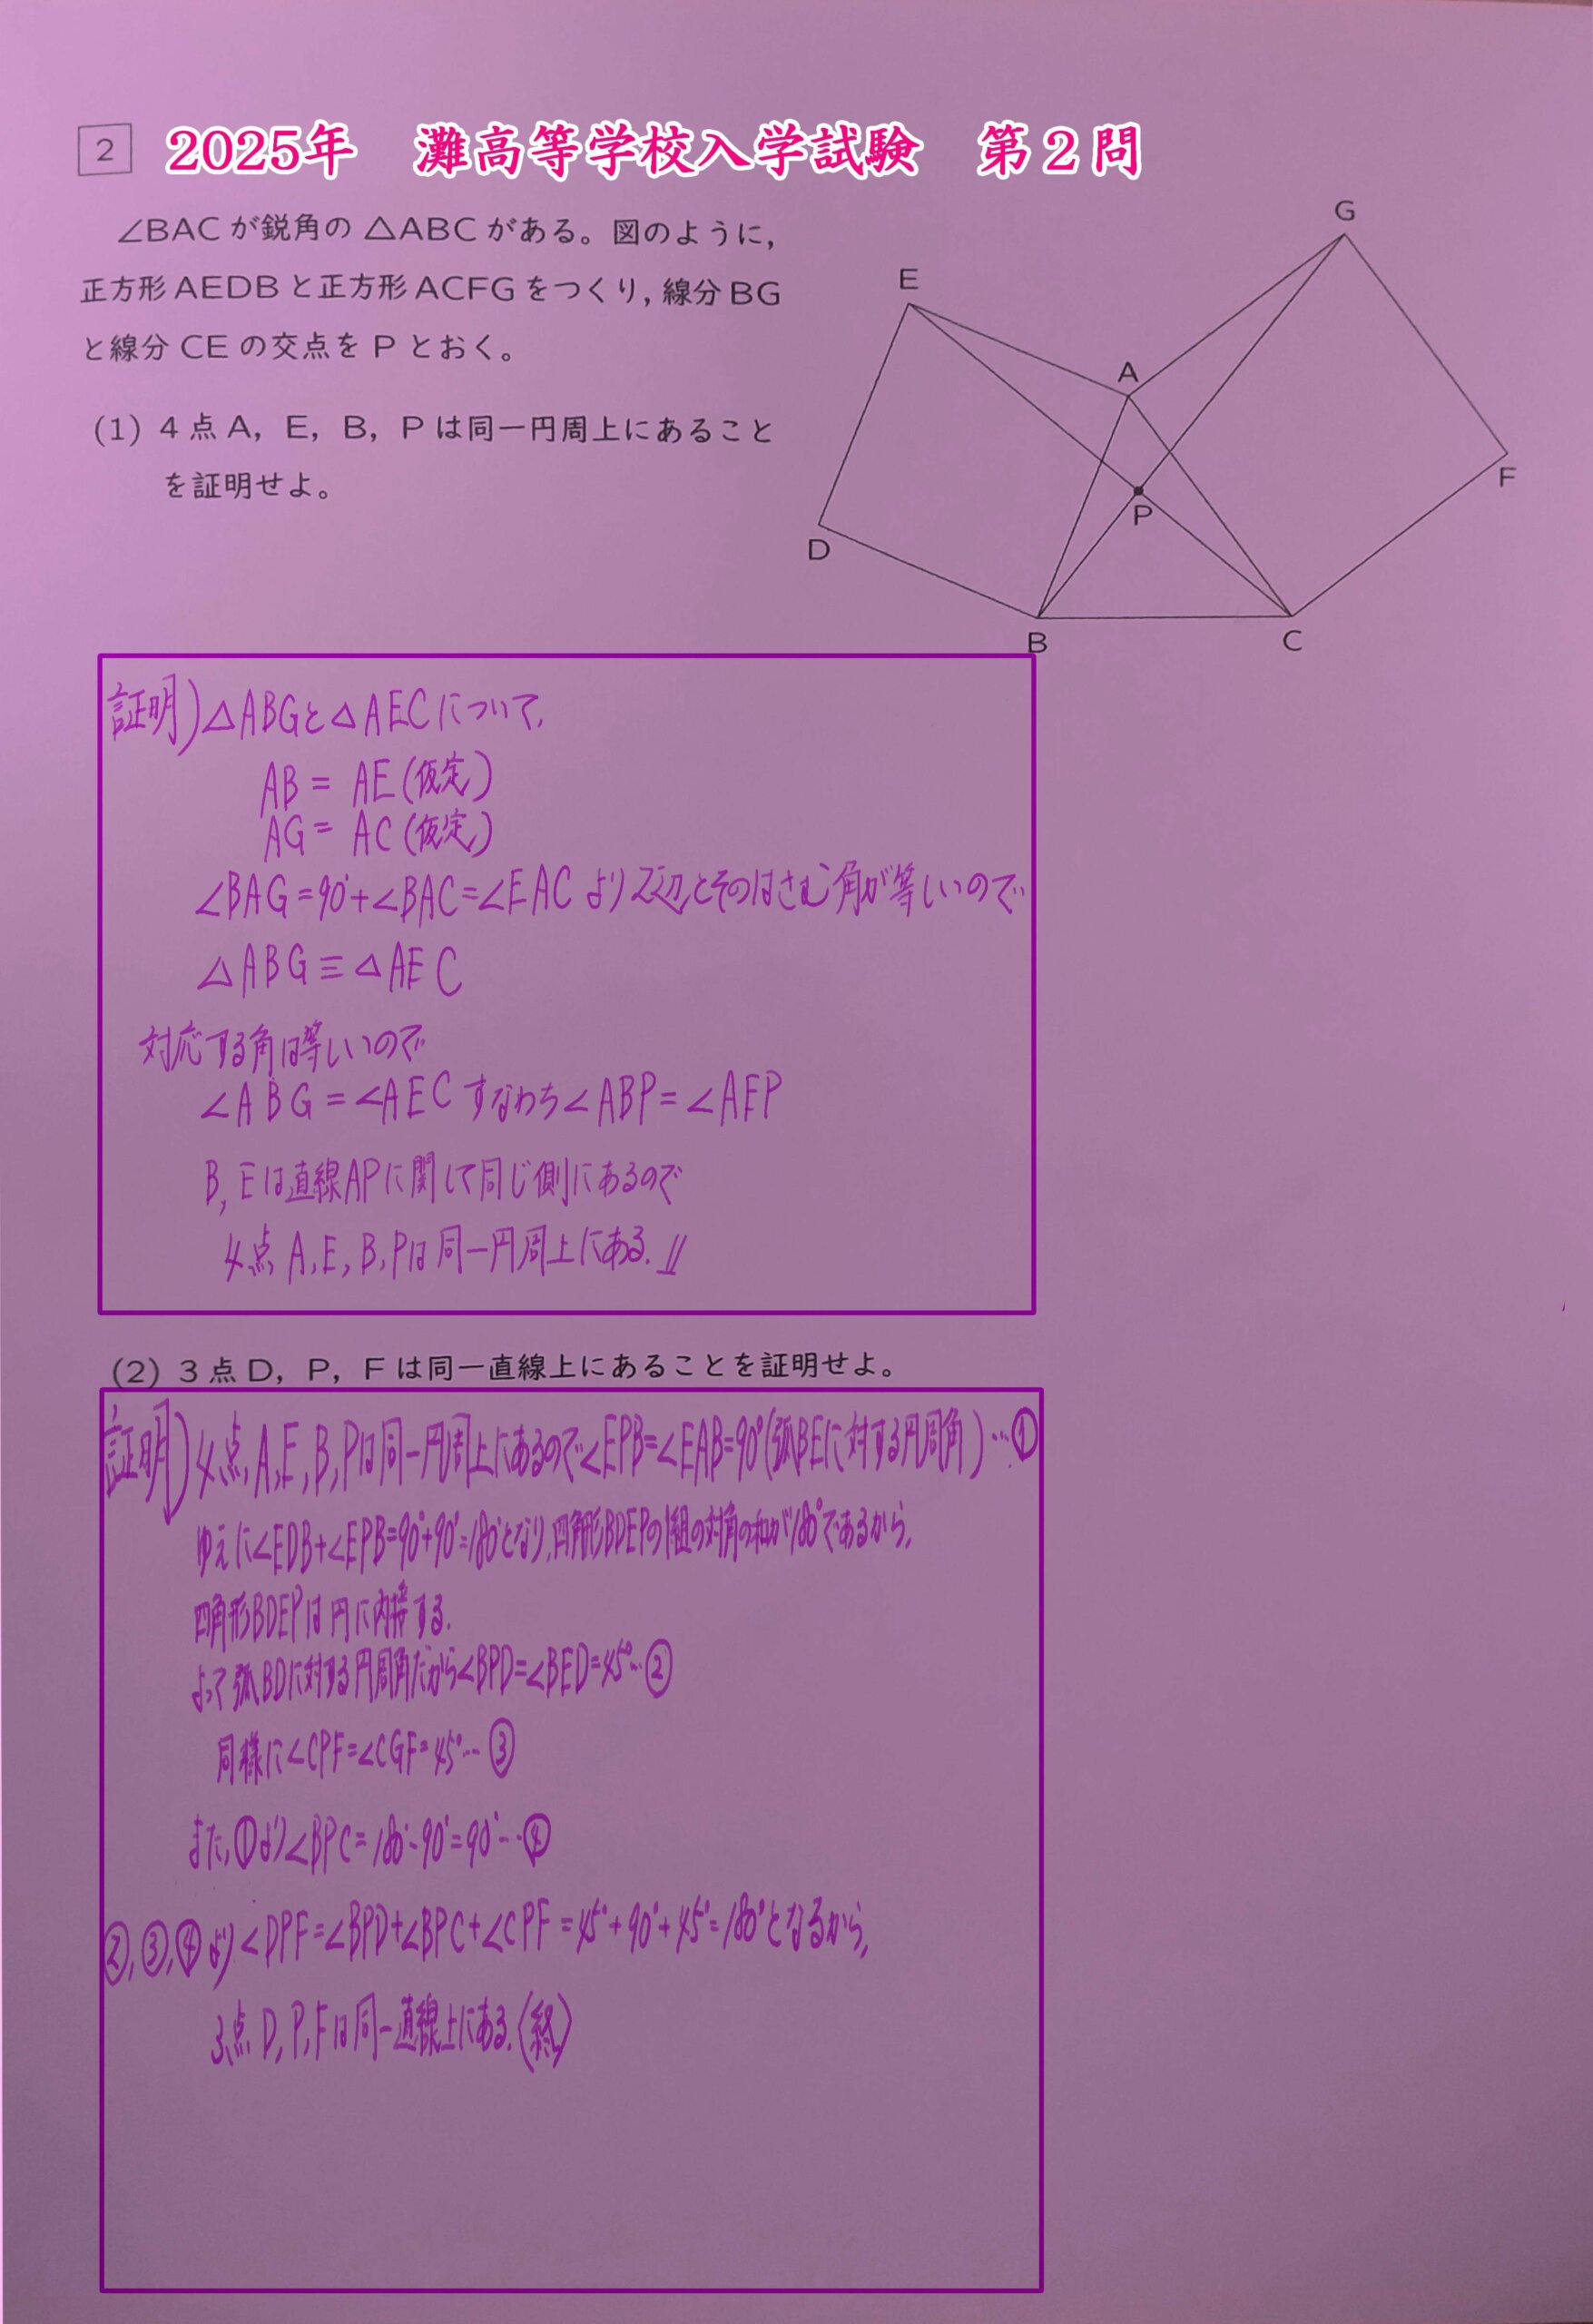 2 2025年 灘高等学校入学試験 第2問
∠BACが鋭角の△ABCがある。図のように,
正方形AEDBと正方形ACFGをつくり,線分BG
と線分CEの交点をPとおく。
(1) 4点A, E, B, Pは同一円周上にあること
を証明せよ。
G
E
A
F
P
D
B
C
証明)△ABGと△AECについて,
AB = AE (仮定)
AG = AC (仮定)
∠BAG=90°+∠BAC=∠EACより2辺とそのはさむ角が等しいので
△ABG≡△AEC
対応する角は等しいので
∠ABG=∠AECすなわち∠ABP=∠AEP
B, Eは直線APに関して同じ側にあるので
4点A, E, B, Pは同一円周上にある.//
(2) 3点D, P, Fは同一直線上にあることを証明せよ。
証明)4点A,E,B,Pは同一円周上にあるので∠EPB=∠EAB=90°(弧BEに対する円周角)…①
ゆえに∠EDB+∠EPB=90°+90°=180°となり,四角形BDEPの1組の対角の和が180°であるから,
四角形BDEPは円に内接する.
よって弧BDに対する円周角だから∠BPD=∠BED=45°…②
同様に∠CPF=∠CGF=45°…③
また,①より∠BPC=180°-90°=90°…④
②,③,④より∠DPF=∠BPD+∠BPC+∠CPF=45°+90°+45°=180°となるから,
3点D,P,Fは同一直線上にある.(終)